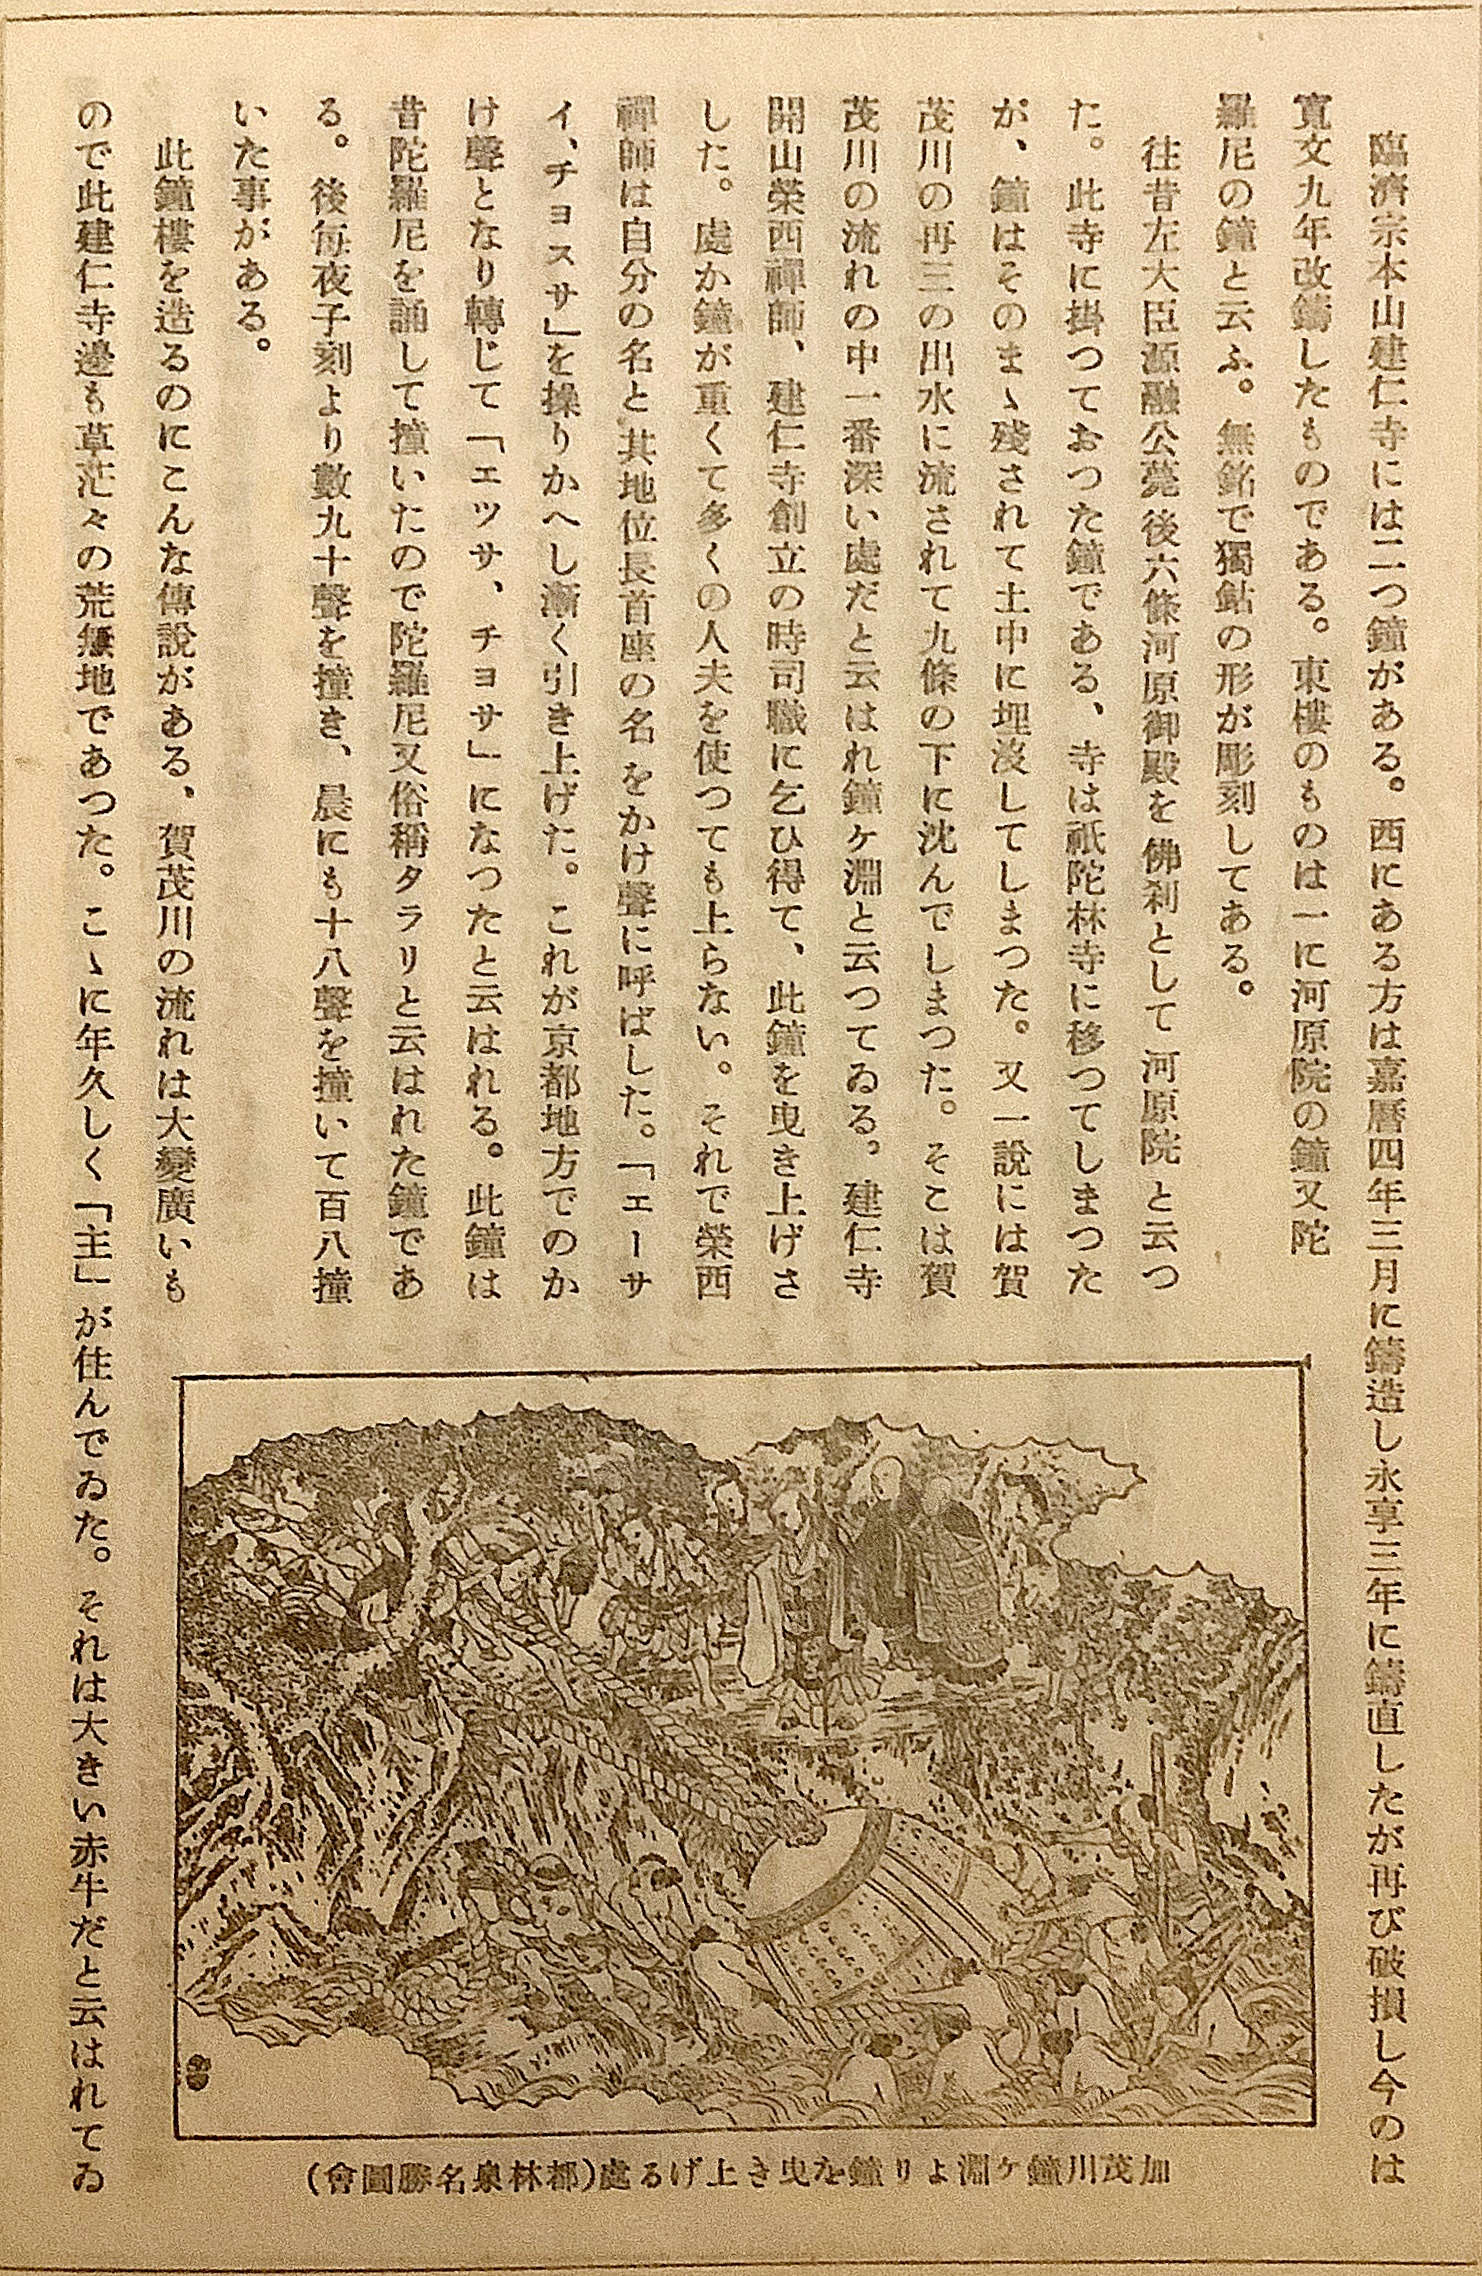 臨濟宗本山建仁寺には二つ鐘がある。西にある方は嘉曆四年三月に鑄造し永享三年に鑄直したが再び破損し今のは
寬文九年改鑄したものである。東樓のものは一に河原院の鐘又陀
羅尼の鐘と云ふ。無銘で獨鈷の形が彫刻してある。
往昔左大臣源融公薨後六條河原御殿を佛刹として河原院と云つ
た。此寺に掛つておつた鐘である、寺は祇陀林寺に移つてしまつた
が、鐘はそのまゝ殘されて土中に埋沒してしまつた。又一說には賀
茂川の再三の出水に流されて九條の下に沈んでしまつた。そこは賀
茂川の流れの中一番深い處だと云はれ鐘ヶ淵と云つてゐる。建仁寺
開山榮西禪師、建仁寺創立の時司職に乞ひ得て、此鐘を曳き上げさ
した。處か鐘が重くて多くの人夫を使つても上らない。それで榮西
禪師は自分の名と其地位長首座の名をかけ聲に呼ばした。「エーサ
イ、チョスサ」を操りかへし漸く引き上げた。これが京都地方でのか
け聲となり轉じて「エッサ、チョサ」になつたと云はれる。此鐘は
昔陀羅尼を誦して撞いたので陀羅尼又俗稱タラリと云はれた鐘であ
る。後每夜子刻より數九十聲を撞き、晨にも十八聲を撞いて百八撞
いた事がある。
此鐘樓を造るのにこんな傳說がある、賀茂川の流れは大變廣いも
ので此建仁寺邊も草茫々の荒無地であつた。こゝに年久しく「主」が住んでゐた。それは大きい赤牛だと云はれてゐ
加茂川鐘ヶ淵より鐘を曳き上げる處(都林泉名勝圖會)